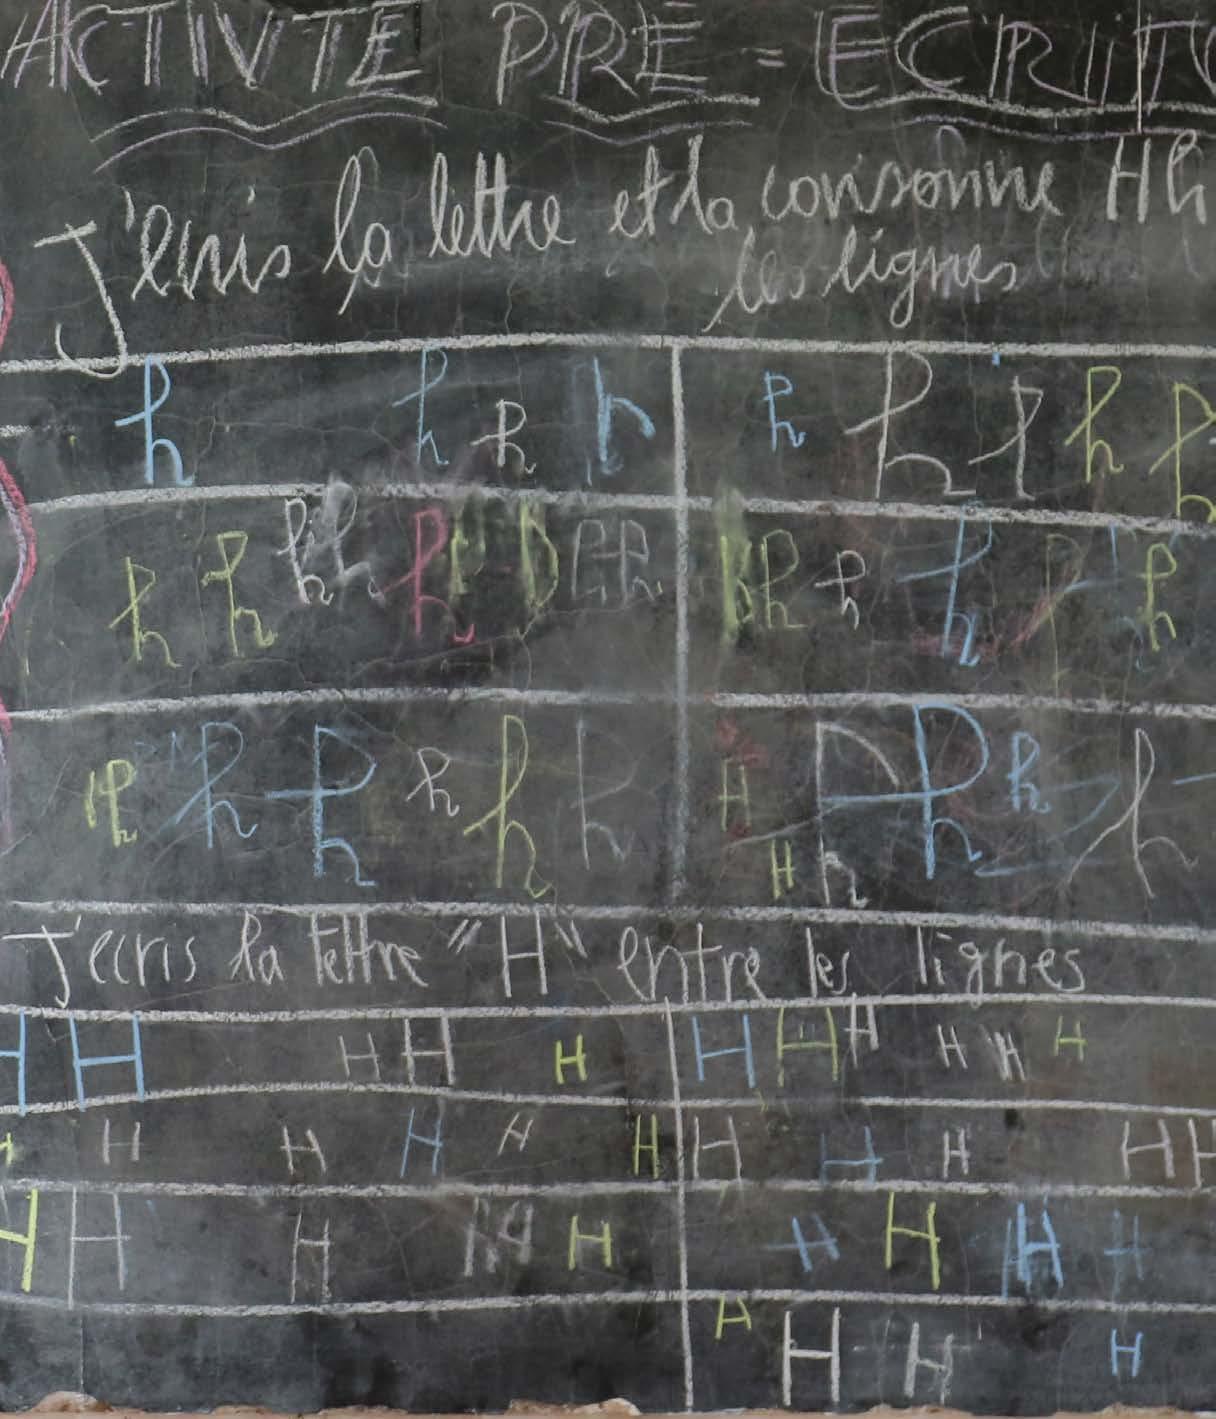 ACTIVTE PRE = ECRITU
J'écris la lettre et la consonne H h
les lignes
h h h h h h h h h
h h h h h h h h h h h
h h h h h h H h h h h
H h
J'ecris la lettre "H" entre les lignes
H H H H H H H H H H H
H H H H H H H H H H H
H H H H H H H H H H
H H H H